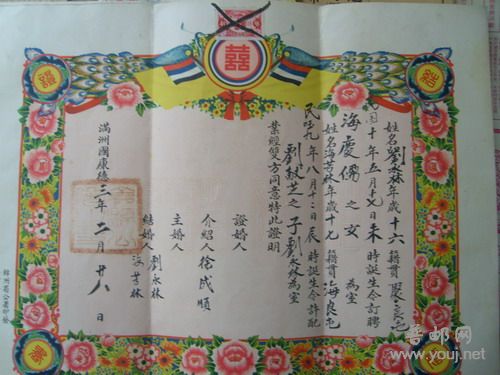 囍
姓名劉永林年歲十六籍貫聚良屯
民國十年五月十七日未時誕生今訂聘
海慶儒之女為室
姓名海芳林年歲十九籍貫海良屯
民國九年八月十二日辰時誕生今許配
劉獻芝之子劉永林為室
業經雙方同意特此證明
證婚人
介紹人徐成順
主婚人
結婚人劉永林
海芳林
滿洲國康德三年二月廿八日
錦州省公署印發
普邮网
www.youj.net